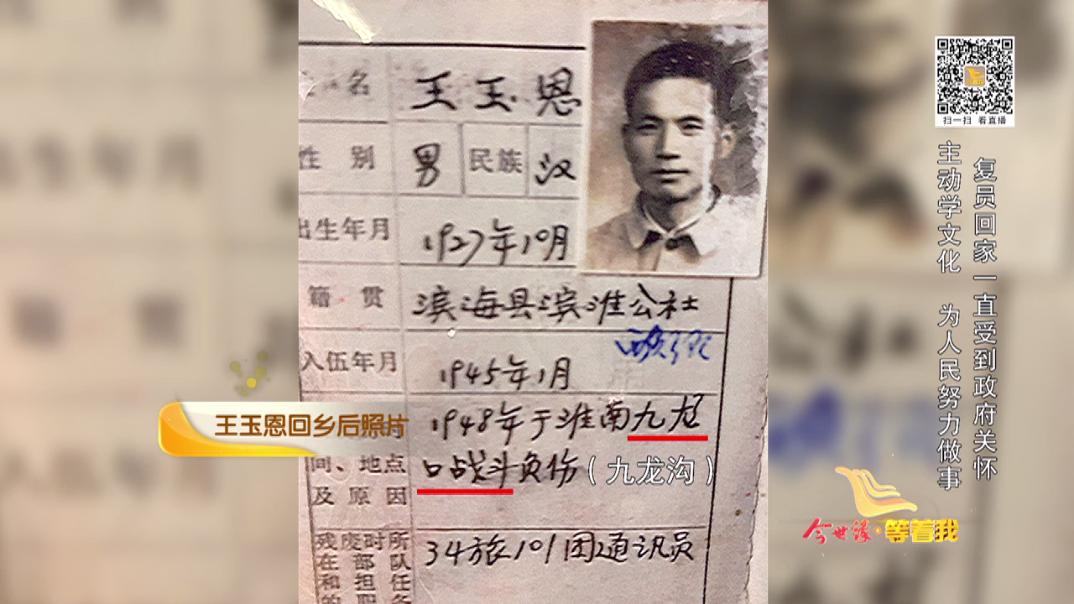 姓名 王玉恩
性别 男 民族 汉
出生年月 1927年10月
籍贯 滨海县滨淮公社
入伍年月 1945年1月
1948年于淮南九龙
间、地点 口战斗负伤（九龙沟）
及原因
残废时所 34旅101团通讯员
在部队
和担任
的职务
王玉恩回乡后照片
扫一扫 看直播
复员回家一直受到政府关怀
主动学文化 为人民努力做事
今世缘·等着我